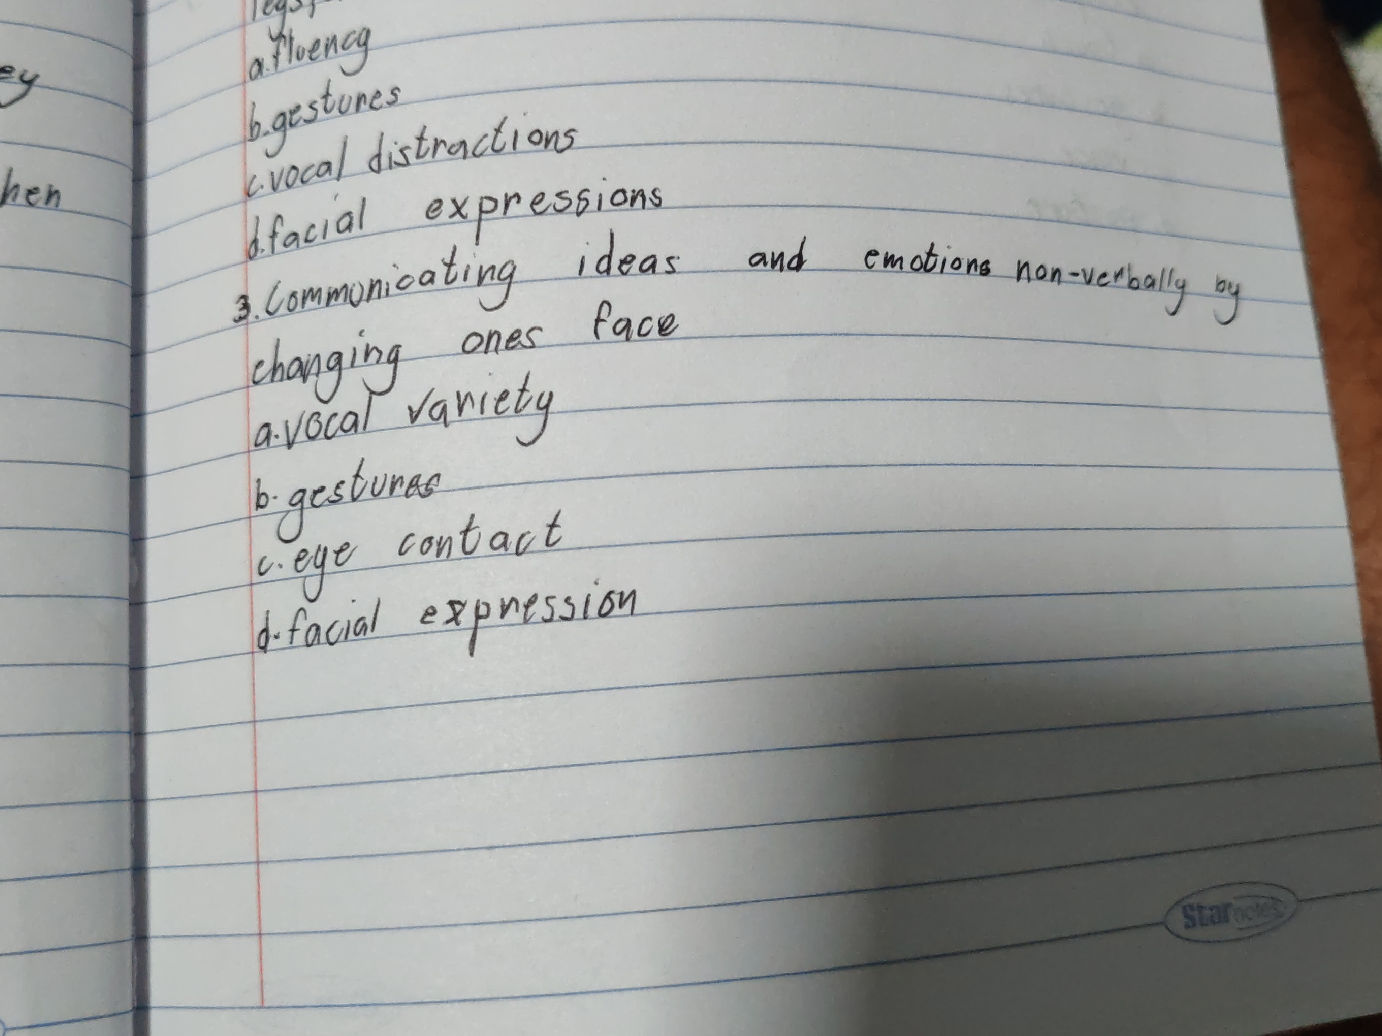 legs,
a.fluency
b.gestures
c.vocal distractions
d.facial expressions
3.Communicating ideas and emotions non-verbally by
changing ones face
a.vocal variety
b.gestures
c.eye contact
d.facial expression
ey
hen
Starnotes